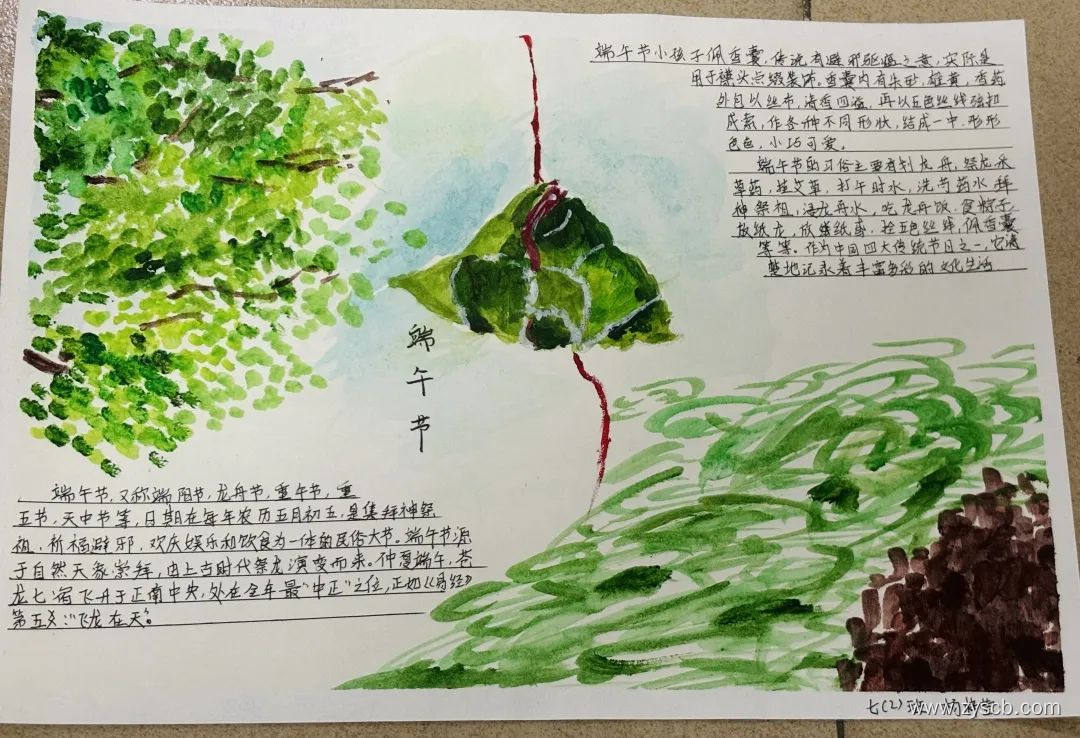 端午节小孩子佩香囊,传说有避邪驱瘟之意,实际是
用于襟头点缀装饰。香囊内有朱砂,雄黄,香药
外包以丝布,清香四溢,再以五色丝线弦扣
成索,作各种不同形状,结成一串,形形
色色,小巧可爱。
端午节的习俗主要有扒龙舟,祭龙,采
草药,挂艾草,打午时水,洗草药水,拜
神祭祖,浸龙舟水,吃龙舟饭,食粽子,
放纸龙,放纸鸢,拴五色丝线,佩香囊
等等。作为中国四大传统节日之一,它清
楚地记录着丰富多彩的文化生活
端
午
节
端午节,又称端阳节,龙舟节,重午节,重
五节,天中节等,日期在每年农历五月初五,是集拜神祭
祖,祈福避邪,欢庆娱乐和饮食为一体的民俗大节。端午节源
于自然天象崇拜,由上古时代祭龙演变而来。仲夏端午,苍
龙七宿飞升于正南中央,处在全年最“中正”之位,正如《易经》
第五爻:“飞龙在天”。
七(2)班
www.zyscb.com